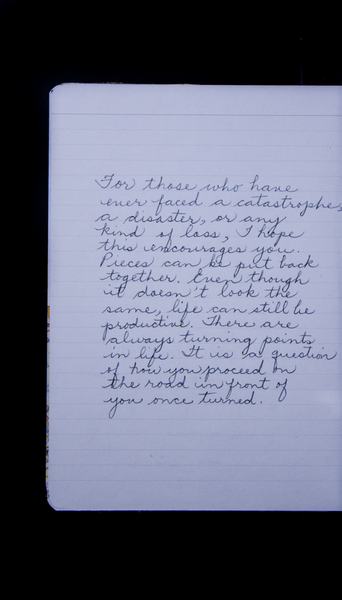 For those who have
ever faced a catastrophe,
a disaster, or any
kind of loss, I hope
this encourages you.
Pieces can be put back
together. Even though
it doesn't look the
same, life can still be
productive. There are
always turning points
in life. It is a question
of how you proceed on
the road in front of
you once turned.